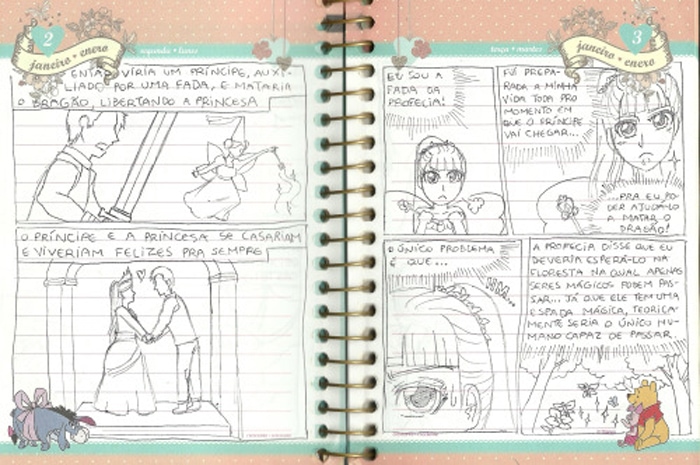 2
janeiro • enero
segunda • lunes
ENTÃO VIRIA UM PRÍNCIPE, AUXI-
LIADO POR UMA FADA, E MATARIA
O DRAGÃO, LIBERTANDO A PRINCESA
O PRÍNCIPE E A PRINCESA SE CASARIAM
E VIVERIAM FELIZES PRA SEMPRE
terça • martes
3
janeiro • enero
EU SOU A
FADA DA
PROFECIA!
FUI PREPA-
RADA A MINHA
VIDA TODA PRO
MOMENTO EM
QUE O PRÍNCIPE
VAI CHEGAR...
...PRA EU PO-
DER AJUDA-LO
A MATAR O
DRAGÃO!
O ÚNICO PROBLEMA
É QUE...
HM...
A PROFECIA DISSE QUE EU
DEVERIA ESPERÁ-LO NA
FLORESTA NA QUAL APENAS
SERES MÁGICOS PODEM PAS-
SAR... JÁ QUE ELE TEM UMA
ESPADA MÁGICA, TEORICA-
MENTE SERIA O ÚNICO HU-
MANO CAPAZ DE PASSAR